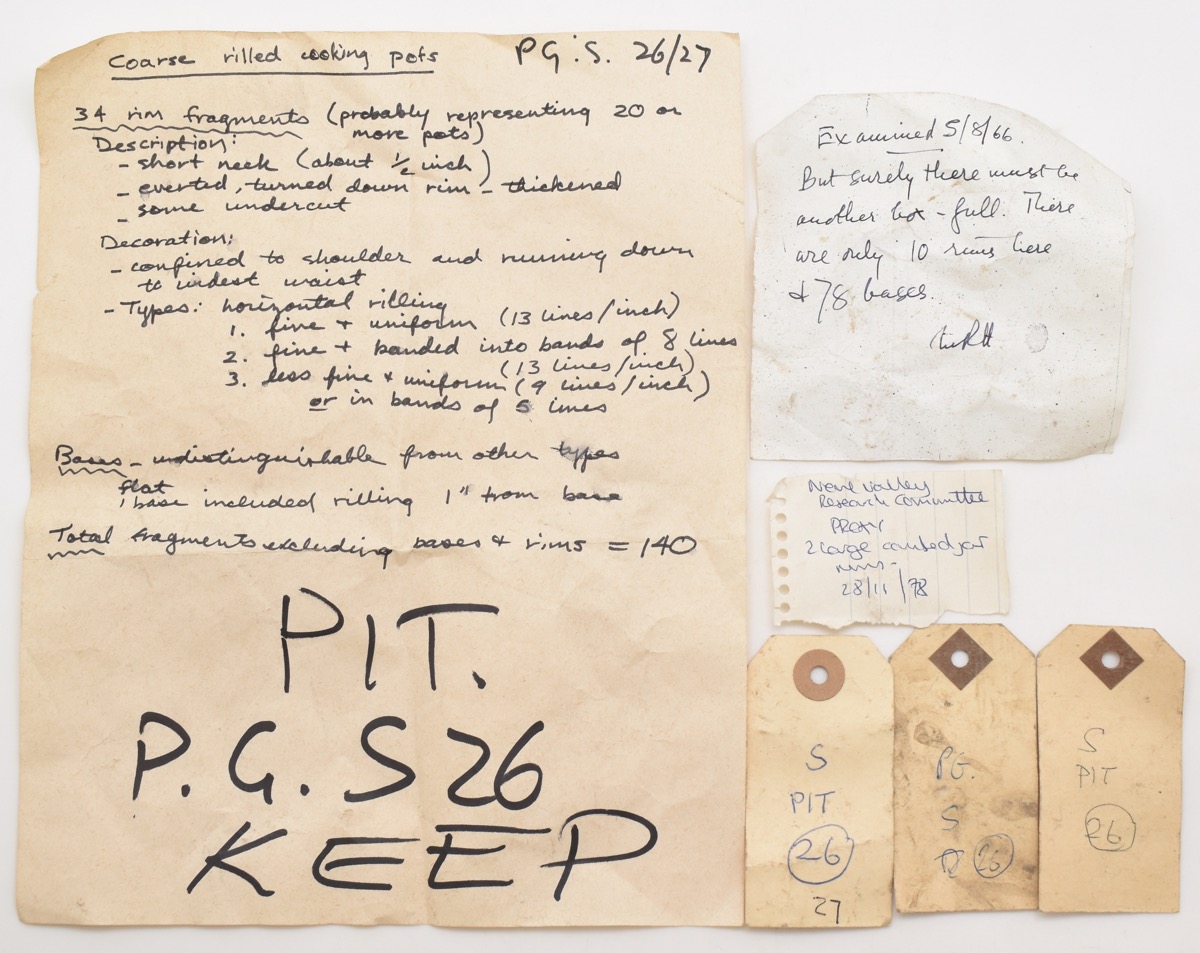 Coarse rilled cooking pots P.G.S. 26/27
34 rim fragments (probably representing 20 or
more pots)
Description:
- short neck (about ½ inch)
- everted, turned down rim - thickened
- some undercut
Decoration:
- confined to shoulder and running down
to widest waist
- Types: horizontal rilling
1. fine + uniform (13 lines/inch)
2. fine + banded into bands of 8 lines
(13 lines/inch)
3. less fine + uniform (9 lines/inch)
or in bands of 5 lines
Bases - undistinguishable from other types
flat
1 base included rilling 1" from base
Total fragments excluding bases & rims = 140
PIT.
P.G.S 26
KEEP
Examined 5/8/66.
But surely there must be
another box-full. There
are only 10 rims here
& 78 bases.
Nene Valley
Research Committee
2 large combed jar
rims-
28/11/78
S
PIT
26
27
PG.
S
26
S
PIT
26